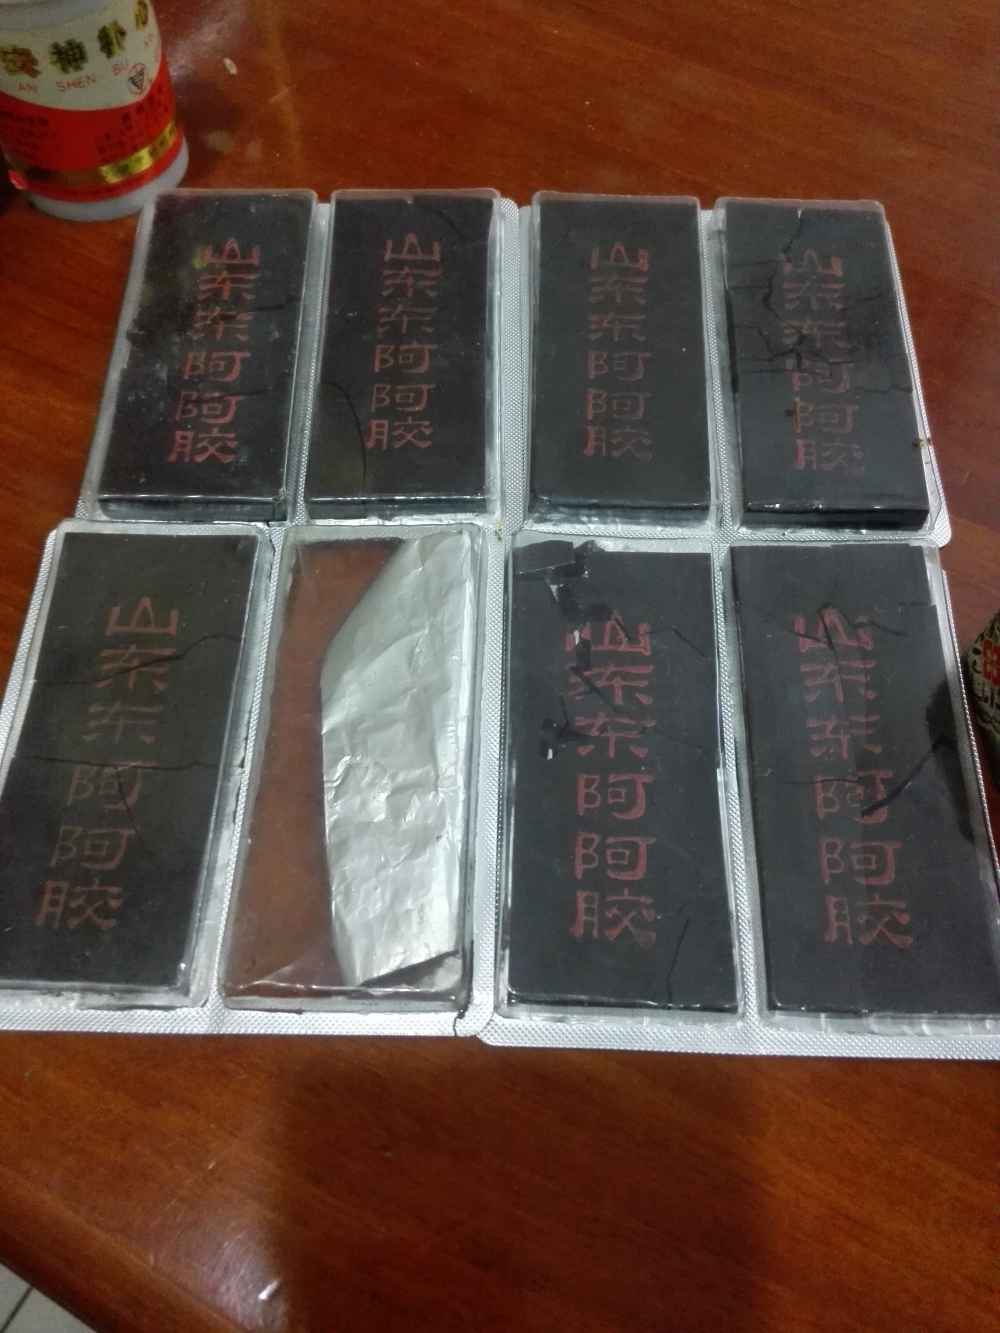 安神补
AN SHEN BU
山东东阿阿胶
山东东阿阿胶
山东东阿阿胶
山东东阿阿胶
山东东阿阿胶
山东东阿阿胶
山东东阿阿胶